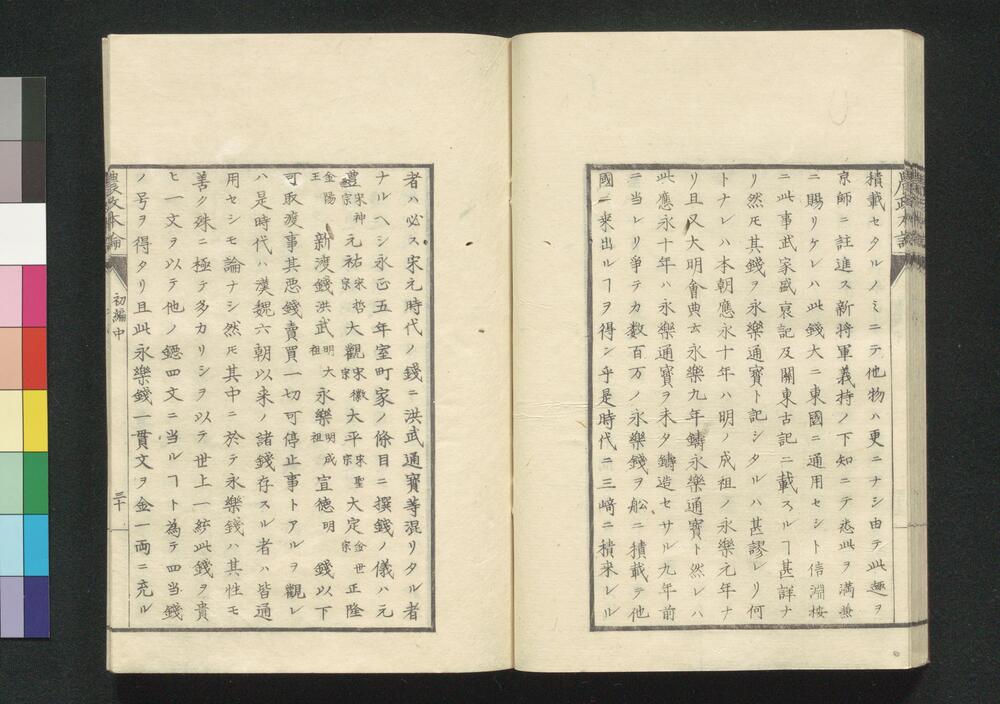 積載セタルノミニテ他物ハ更ニナシ由テ此趣ヲ
京師ニ註進ス新将軍義持ノ下知ニテ悉此ヲ満兼
ニ賜リケレハ此錢大ニ東國ニ通用セシト信淵桉
ニ此事武家盛衰記及關東古記ニ載スルヿ甚詳ナ
リ然モ其錢ヲ永樂通寳ト記シタルハ甚謬レリ何
トナレハ本朝應永十年ハ明ノ成祖ノ永樂元年ナ
リ且又大明會典云永樂九年鑄永樂通寳ト然レハ
此應永十年ハ永樂通寳ヲ未タ鑄造セサル九年前
ニ当レリ爭テカ数百万ノ永樂錢ヲ舩ニ積載テ他
國ニ来出ルヿヲ得ン乎是時代ニ三﨑ニ積来レル
農政本論
者ハ必ス宋元時代ノ錢ニ洪武通寳等混リタル者
ナルヘシ永正五年室町家ノ條目ニ撰錢ノ儀ハ元
豊宋神宗元祐宋哲宗大觀宋徽宗大平宋聖宗大定金世宗正隆
金陽王 新渡錢洪武明大祖永樂明成祖宣德明 錢以下
可取渡事其悪錢賣買一切可停止事トアルヲ觀レ
ハ是時代ハ漢魏六朝以来ノ諸錢存スル者ハ皆通
用セシモ論ナシ然モ其中ニ於テ永樂錢ハ其性モ
善ク殊ニ極テ多カリシヲ以テ世上一統此錢ヲ貴
ヒ一文ヲ以テ他ノ鐚四文ニ当ルヿト為テ四当錢
ノ号ヲ得タリ且此永樂錢一貫文ヲ金一両ニ充ル
農政本論
初編中
三十